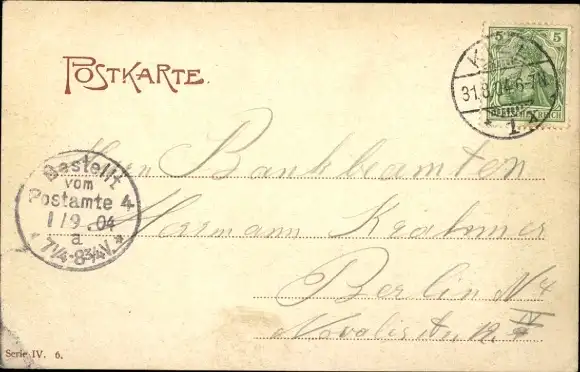 POSTKARTE.
5 5
KIEL
31.8.04.6-7N
1 x
DEUTSCHES REICH
Bestellt
vom
Postamte 4
1/9.04
a
* 7¼-8¾V. *
Herrn Bankbeamten
Herrmann Krähmer
Berlin N4
Novalisstr.
IV
Serie IV. 6.